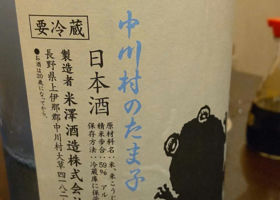 中川村のたま子
日本酒
原材料名:米、米こうじ
精米歩合:59% アル
保存方法:冷蔵庫に保
要冷蔵
製造者 米澤酒造株式会
長野県上伊那郡中川村大草四一八二
●お酒は20歳になってから。